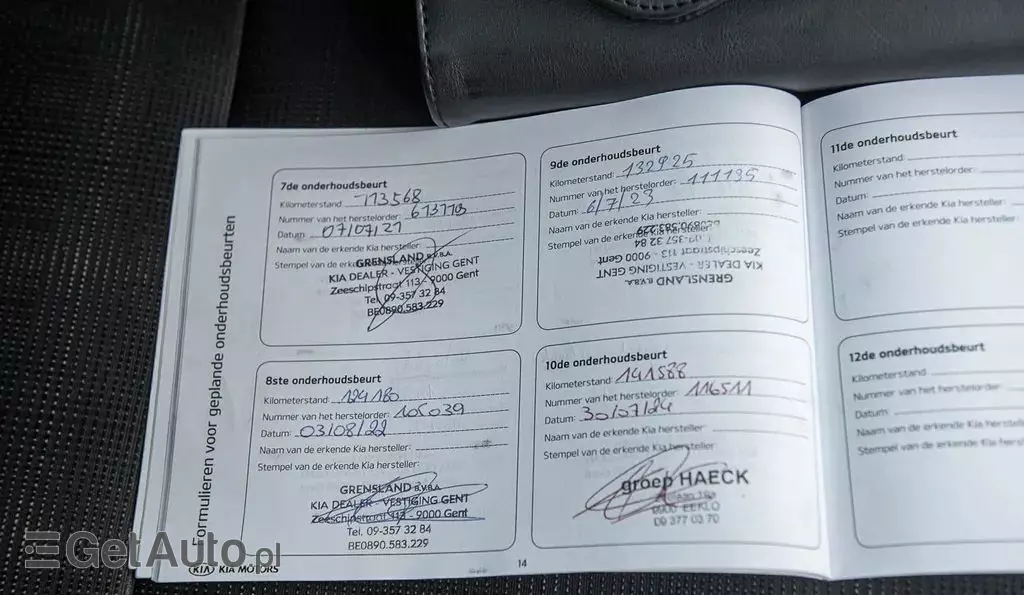 Formulieren voor geplande onderhoudsbeurten
7de onderhoudsbeurt
Kilometerstand 113568
Nummer van het herstelorder:
Datum 07/07/21
Naam van de erkende Kia hersteller:
Stempel van de erkende Kia hersteller:
GRENSLAND B.V.B.A.
KIA DEALER - VESTIGING GENT
Zeeschipstraat 113 - 9000 Gent
Tel. 09-357 32 84
BE0890.583.229
8ste onderhoudsbeurt
Kilometerstand 124180
Nummer van het herstelorder: 105039
Datum: 03/08/22
Naam van de erkende Kia hersteller:
Stempel van de erkende Kia hersteller:
GRENSLAND B.V.B.A.
KIA DEALER - VESTIGING GENT
Zeeschipstraat 113 - 9000 Gent
Tel. 09-357 32 84
BE0890.583.229
9de onderhoudsbeurt
Kilometerstand: 132925
Nummer van het herstelorder: 111135
Datum: 6/7/23
Naam van de erkende Kia hersteller:
Stempel van de erkende Kia hersteller:
GRENSLAND B.V.B.A.
KIA DEALER - VESTIGING GENT
Zeeschipstraat 113 - 9000 Gent
09-357 32 84
BE0890.583.229
10de onderhoudsbeurt
Kilometerstand: 141588
Nummer van het herstelorder: 116511
Datum: 30/07/24
Naam van de erkende Kia hersteller:
Stempel van de erkende Kia hersteller:
groep HAECK
9900 EEKLO
09 377 03 70
11de onderhoudsbeurt
Kilometerstand:
Nummer van het herstelorder:
Datum:
Naam van de erkende Kia hersteller:
Stempel van de erkende Kia hersteller
12de onderhoudsbeurt
Kilometerstand
Nummer van het herstelorder:
Datum:
Naam van de erkende Kia hersteller
Stempel van de erkende Kia
14
KIA KIA MOTORS
GetAuto.pl